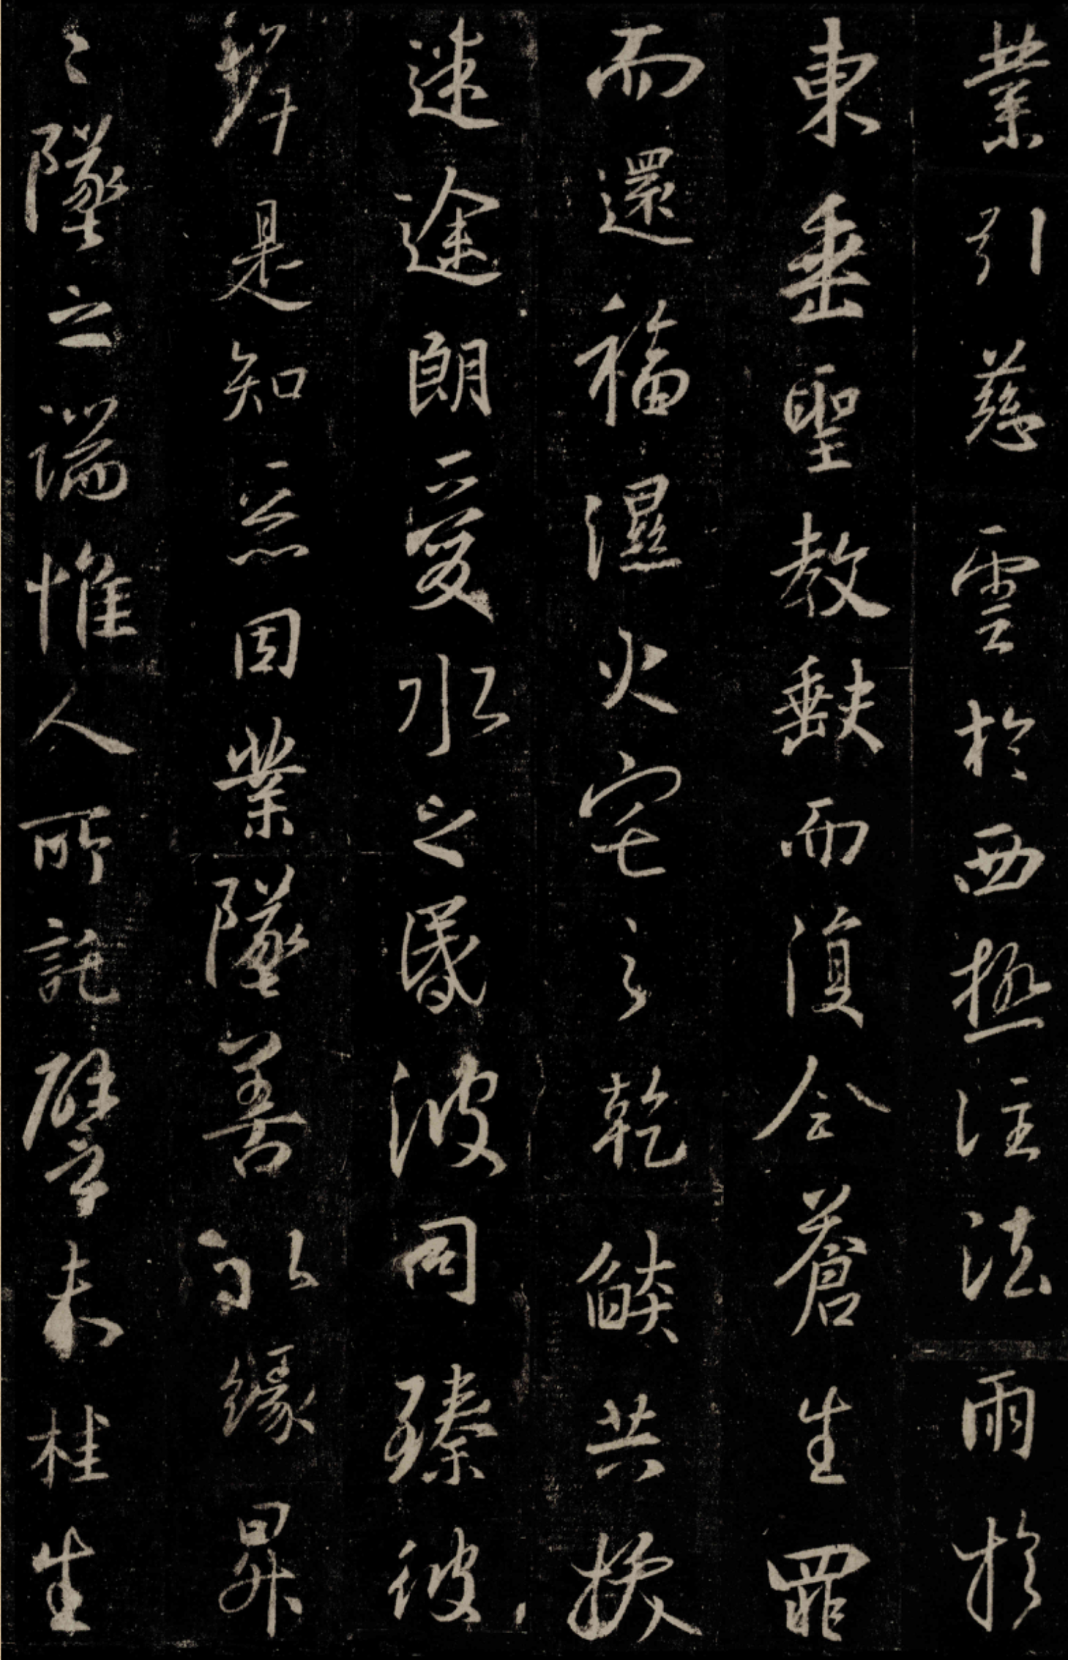 業引慈雲於西極注法雨於
東垂聖教缺而復全蒼生罪
而還福濕火宅之乾燄共拔
迷途朗愛水之昏波同臻彼
岸是知惡因業墜善以緣昇
〻墜之端惟人所託譬夫桂生